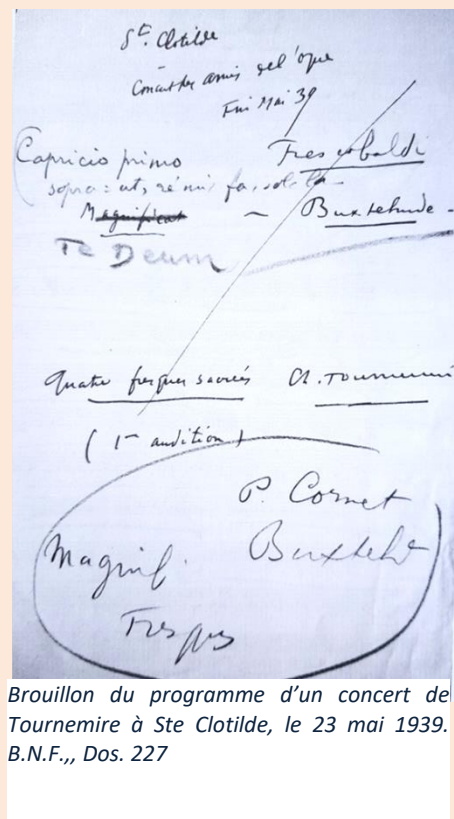 Ste. Clotilde
Concert des amis de l'orgue
Fin Mai 39
Capricio primo Frescobaldi
sopra: ut, ré mi fa, sol la
Magnificat – Buxtehude -
Te Deum
Quatre fresques sacrées Ch. Tournemire
(1re audition)
P. Cornet
Magnif. Buxtehude
Fresques
Brouillon du programme d'un concert de
Tournemire à Ste Clotilde, le 23 mai 1939.
B.N.F.,, Dos. 227